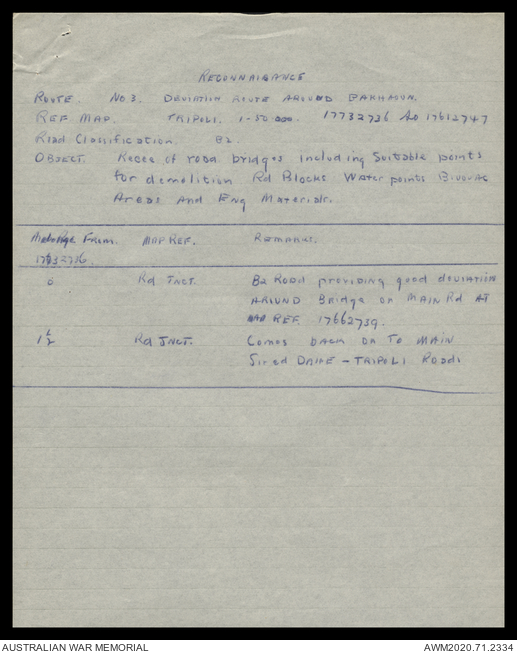 RECONNAISANCE
ROUTE. No 3. DEVIATION ROUTE AROUND BAKHAOUN.
REF MAP. TRIPOLI. 1-50 000. 17732736 to 17612747
Road Classification. B2.
OBJECT. Recce of road bridges including suitable points
for demolition Rd Blocks Water points Bivouac
Areas and Eng Materials.
Mileage From. MAP REF. REMARKS.
17732736.
0 Rd JNCT. B2 Road providing good deviation
AROUND Bridge on MAIN Rd AT
REF. 17662739.
1 1/2 Rd JNCT. Comes BACK ON TO MAIN
Sir ed DANIE - TRIPOLI Road.
AUSTRALIAN WAR MEMORIAL AWM2020.71.2334